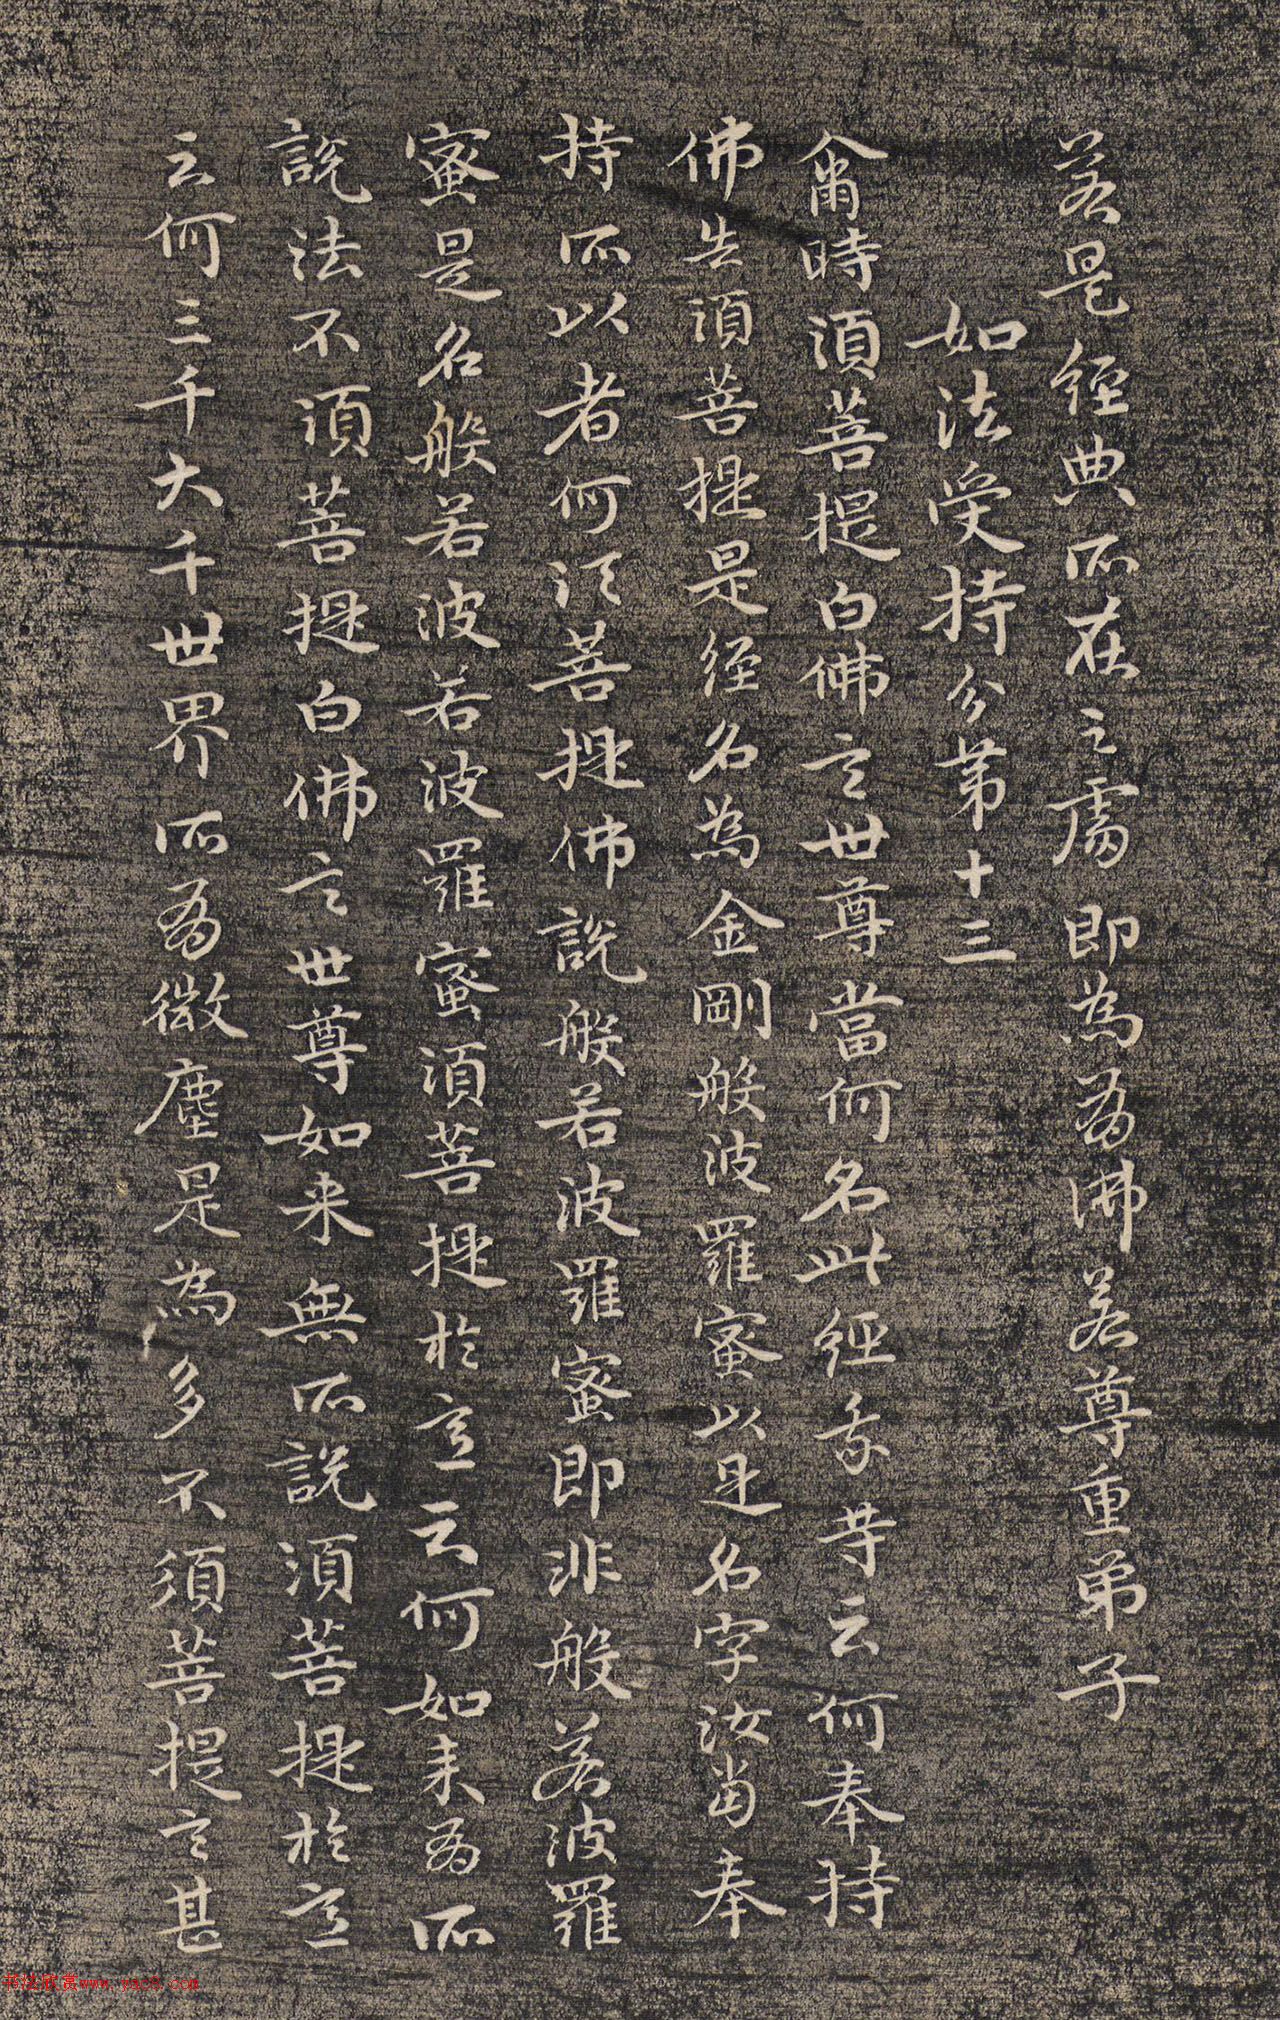 若是經典所在之處即為有佛若尊重弟子
如法受持分第十三
尒爾時須菩提白佛言世尊當何名此經我等云何奉持
佛告須菩提是經名為金剛般波羅蜜以是名字汝當奉
持所以者何須菩提佛說般若波羅蜜即非般若波羅
蜜是名般若波若波羅蜜須菩提於意云何如来有所
說法不須菩提白佛言世尊如来無所說須菩提於意
云何三千大千世界所有微塵是為多不須菩提言甚
书法欣赏www.yac8.com